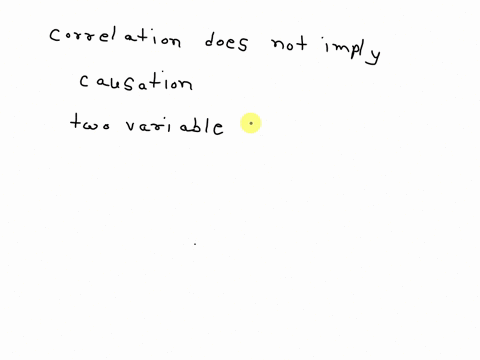 correlation does not imply
causation
two variable